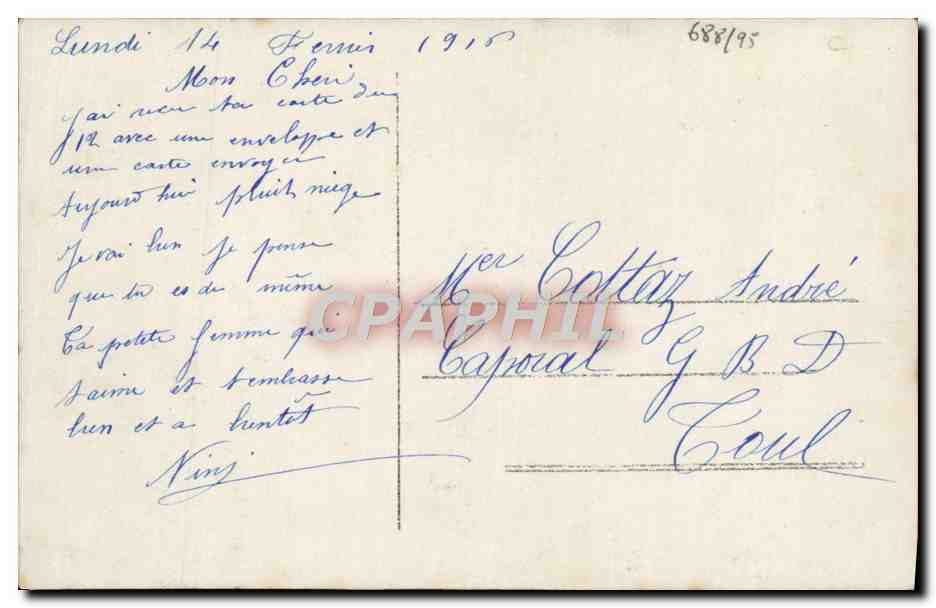 Lundi 14 Fevrier 1916
688/95
C
Mon Cheri
J'ai recu ta carte du
12 avec une enveloppe et
une carte envoyer
Aujourd'hui pluit niege
Je vai bien je pense
que tu es de même
Ta petite femme qui
t'aime et t'embrasse
bien et a bientôt
Nini
Mer Cottaz André
Caporal G B D
Toul
CPAPHIL